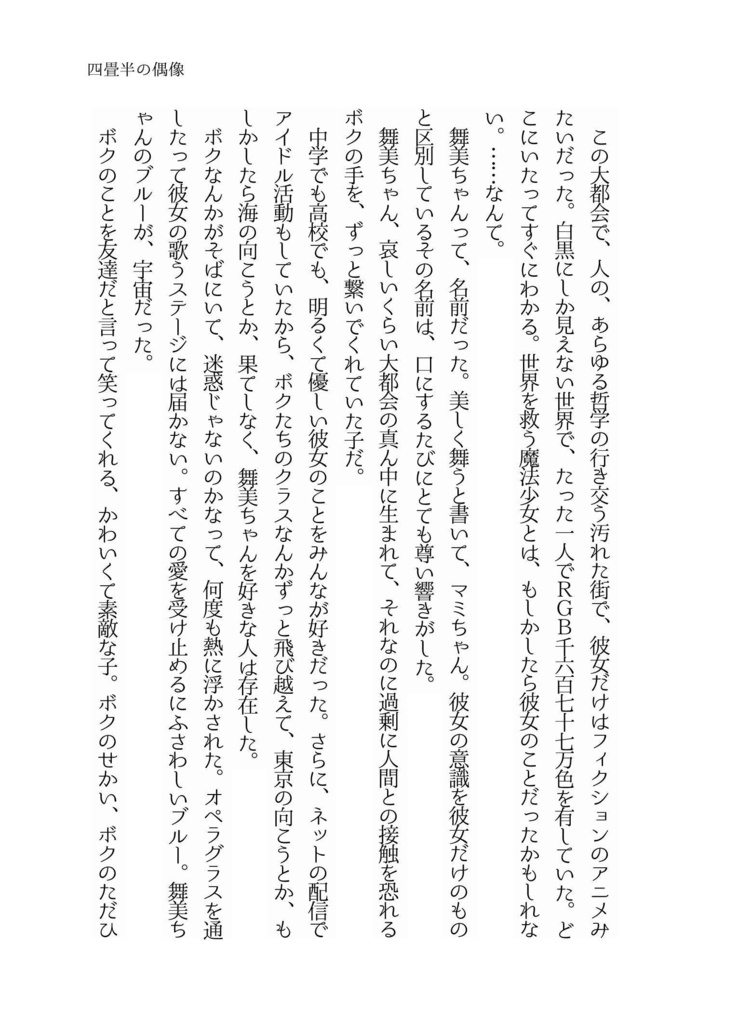 四畳半の偶像
　この大都会で、人の、あらゆる哲学の行き交う汚れた街で、彼女だけはフィクションのアニメみ
たいだった。白黒にしか見えない世界で、たった一人でＲＧＢ千六百七十七万色を有していた。ど
こにいたってすぐにわかる。世界を救う魔法少女とは、もしかしたら彼女のことだったかもしれな
い。……なんて。
　舞美ちゃんって、名前だった。美しく舞うと書いて、マミちゃん。彼女の意識を彼女だけのもの
と区別しているその名前は、口にするたびにとても尊い響きがした。
　舞美ちゃん、哀しいくらい大都会の真ん中に生まれて、それなのに過剰に人間との接触を恐れる
ボクの手を、ずっと繋いでくれていた子だ。
　中学でも高校でも、明るくて優しい彼女のことをみんなが好きだった。さらに、ネットの配信で
アイドル活動もしていたから、ボクたちのクラスなんかずっと飛び越えて、東京の向こうとか、も
しかしたら海の向こうとか、果てしなく、舞美ちゃんを好きな人は存在した。
　ボクなんかがそばにいて、迷惑じゃないのかなって、何度も熱に浮かされた。オペラグラスを通
したって彼女の歌うステージには届かない。すべての愛を受け止めるにふさわしいブルー。舞美ち
ゃんのブルーが、宇宙だった。
　ボクのことを友達だと言って笑ってくれる、かわいくて素敵な子。ボクのせかい、ボクのただひ